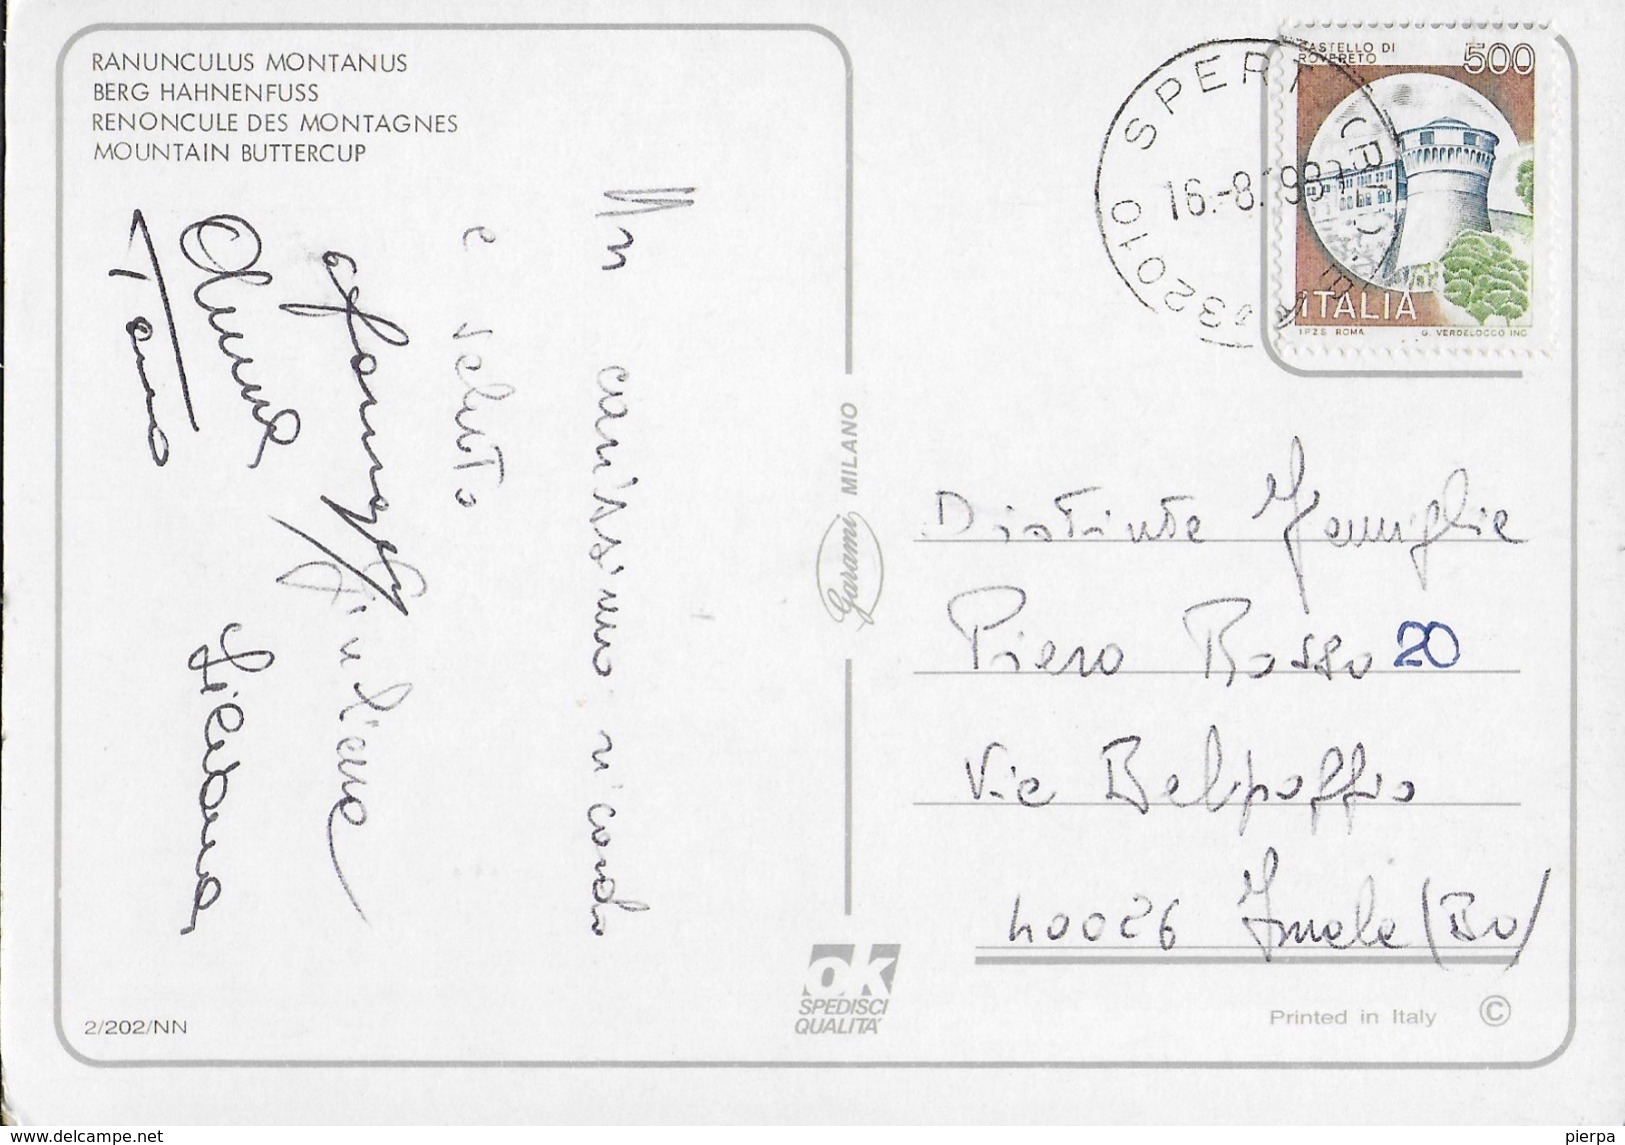 RANUNCULUS MONTANUS
BERG HAHNENFUSS
RENONCULE DES MONTAGNES
MOUNTAIN BUTTERCUP
Un carissimo ricordo
e saluto
Giuliana
Tania
CASTELLO DI
ROVERETO
500
ITALIA
I.P.Z.S. ROMA
G. VERDELOCCO INC.
32010 SPERT
16.-8.
Garami MILANO
Distinta Famiglia
Piero Rosso 20
Via Belpoggio
40026 Imola (Bo)
OK
SPEDISCI
QUALITA'
2/202/NN
Printed in Italy ©
www.delcampe.net
pierpa